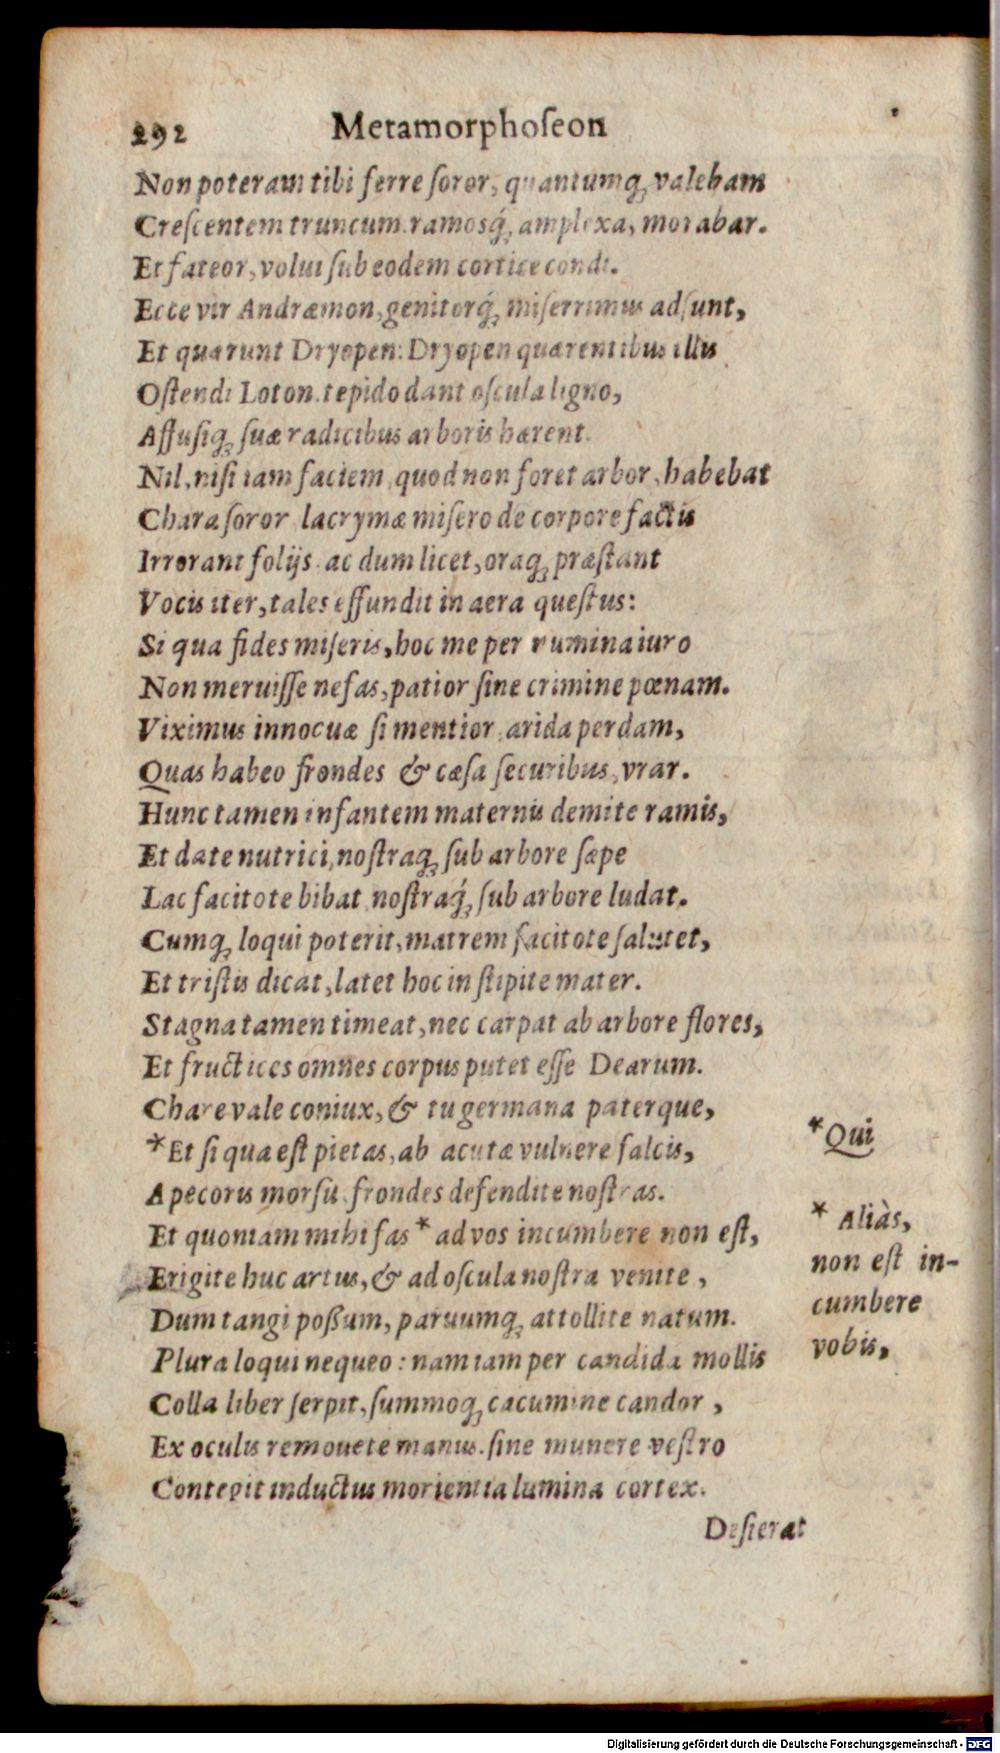 292 Metamorphoſeon
Non poteram tibi ferre ſoror, quantumq; valebam
Creſcentem truncum ramosq́; amplexa, morabar.
Et fateor, volui ſub eodem cortice condi.
Ecce vir Andræmon, genitorq́; miſerrimus adſunt,
Et quærunt Dryopen: Dryopen quærentibus illis
Oſtendi Loton. tepido dant oſcula ligno,
Affuſiq; ſuæ radicibus arboris hærent.
Nil, niſi iam faciem, quod non foret arbor, habebat
Chara ſoror lacrymæ miſero de corpore factis
Irrorant folijs. ac dum licet, oraq; præſtant
Vocis iter, tales effundit in aera queſtus:
Si qua fides miſeris, hoc me per numina iuro
Non meruiſſe nefas, patior ſine crimine pœnam.
Viximus innocuæ ſi mentior, arida perdam,
Quas habeo frondes & cæſa ſecuribus, vrar.
Hunc tamen infantem maternis demite ramis,
Et date nutrici, noſtraq; ſub arbore ſæpe
Lac facitote bibat noſtraq́; ſub arbore ludat.
Cumq; loqui poterit, matrem facitote ſalutet,
Et triſtis dicat, latet hoc in ſtipite mater.
Stagna tamen timeat, nec carpat ab arbore flores,
Et fructices omnes corpus putet eſſe Dearum.
Chare vale coniux, & tu germana paterque,
*Et ſi qua eſt pietas, ab acutæ vulnere falcis,
A pecoris morſu frondes defendite noſtras.
Et quoniam mihi fas * ad vos incumbere non eſt,
Erigite huc artus, & ad oſcula noſtra venite,
Dum tangi poßum, paruumq; attollite natum.
Plura loqui nequeo: nam iam per candida mollis
Colla liber ſerpit, ſummoq; cacumine candor,
Ex oculis remouete manus. ſine munere veſtro
Contegit inductus morientia lumina cortex.
Deſierat
*Qui
* Aliàs,
non eſt in-
cumbere
vobis,
Digitalisierung gefördert durch die Deutsche Forschungsgemeinschaft - DFG